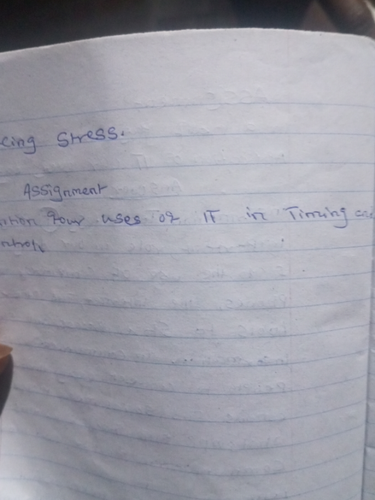 cing stress.
Assignment
ntion four uses of IT in Timing and
ontrol.